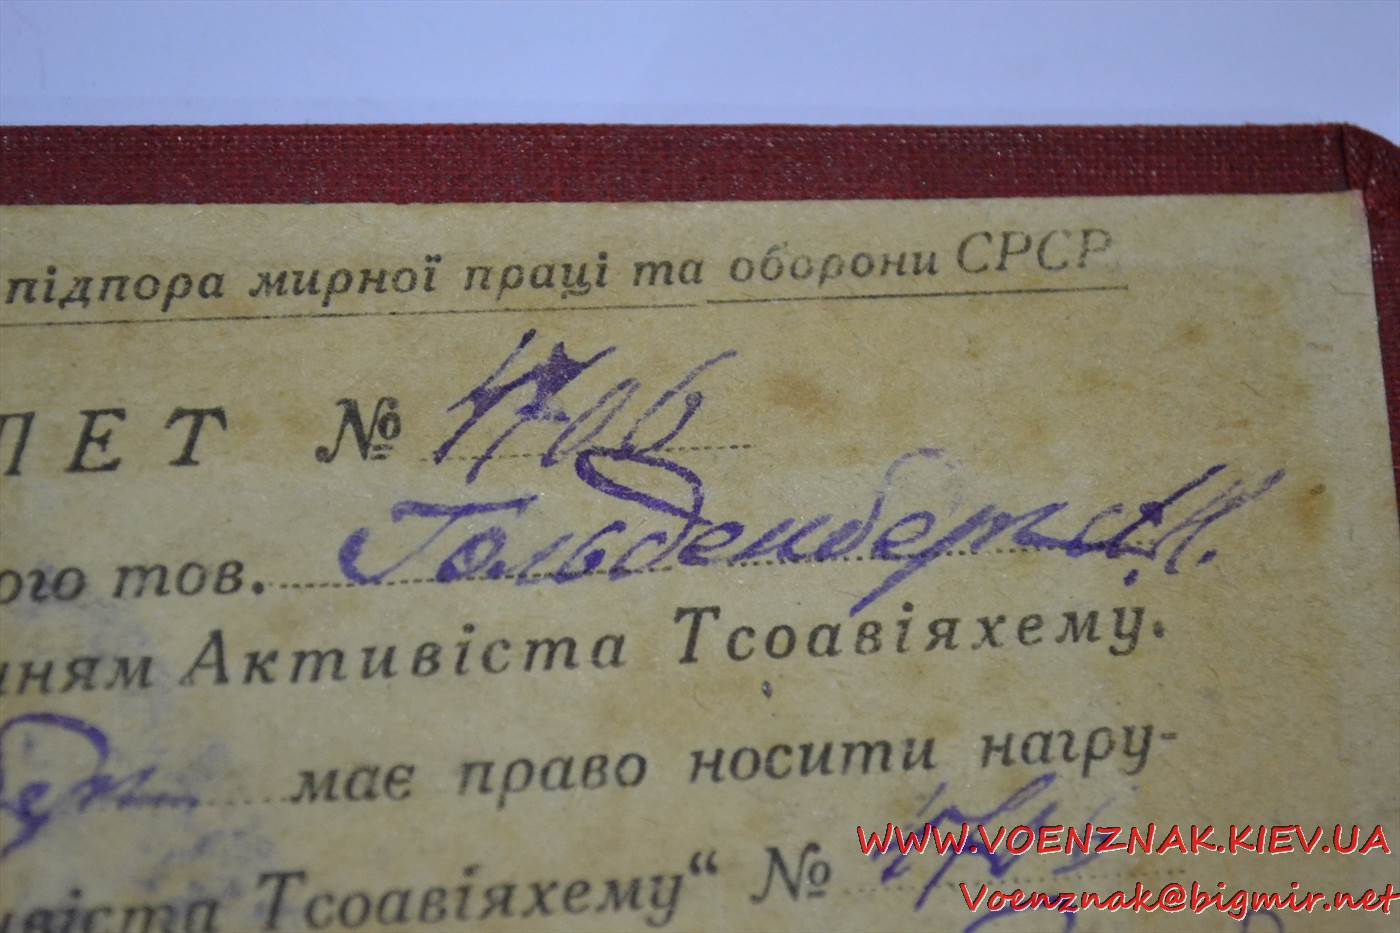 підпора мирної праці та оборони СРСР
ЛЕТ № 1706
ого тов. Гольденберг А.И.
ням Активіста Тсоавіяхему.
має право носити нагру-
WWW.VOENZNAK.KIEV.UA
віста Тсоавіяхему“ №
Voenznak@bigmir.net